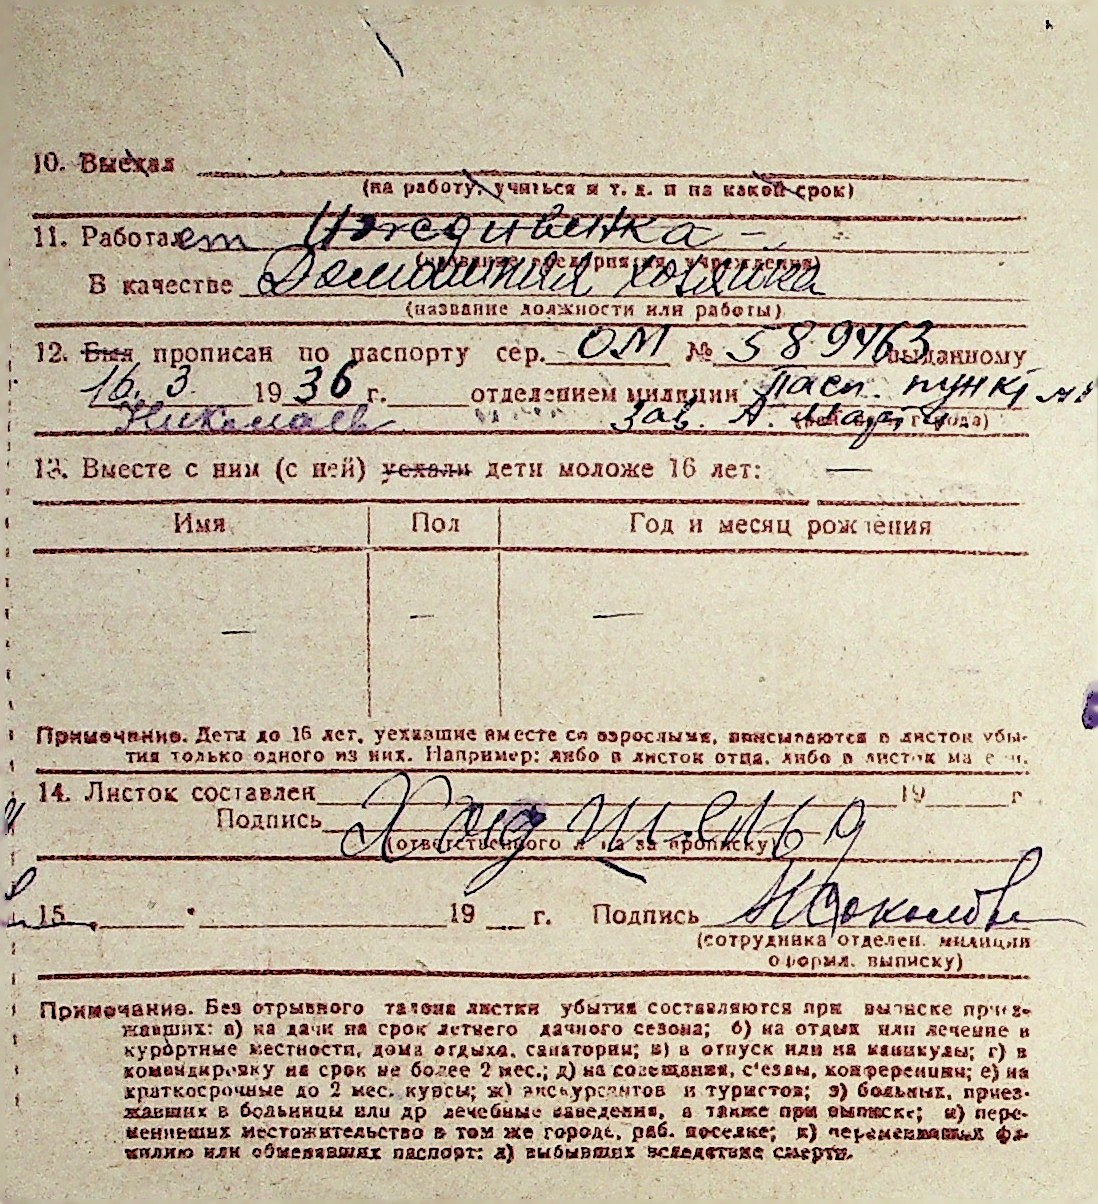 10. Выехал
(на работу, учиться и т. д. и на какой срок)
11. Работает Иждивенка -
(название предприятия, учреждения)
В качестве Домашняя хозяйка
(название должности или работы)
12. Был прописан по паспорту сер. ОМ № 589463 выданному
16. 3. 1936 г. отделением милиции Пасп. пункт
Николаев Зав. А. Марти
13. Вместе с ним (с ней) уехали дети моложе 16 лет: —
Имя Пол Год и месяц рождения
— — —
Примечание. Дети до 16 лет, уехавшие вместе со взрослыми, вписываются в листок убы-
тия только одного из них. Например: либо в листок отца, либо в листок матери.
14. Листок составлен 19 г
Подпись
(ответственного лица за прописку)
15 19 г. Подпись Соколов
(сотрудника отделен. милиции
оформл. выписку)
Примечание. Без отрывного талона листки убытия составляются при выписке приез-
жавших: а) на дачи на срок летнего дачного сезона; б) на отдых или лечение в
курортные местности, дома отдыха, санатории; в) в отпуск или на каникулы; г) в
командировку на срок не более 2 мес.; д) на совещания, с'езды, конференции; е) на
краткосрочные до 2 мес. курсы; ж) экскурсантов и туристов; з) больных, приез-
жавших в больницы или др лечебные заведения, а также при выписке; и) пере-
менивших местожительство в том же городе, раб. поселке; к) переменивших фа-
милию или обменявших паспорт; л) выбывших вследствие смерти.